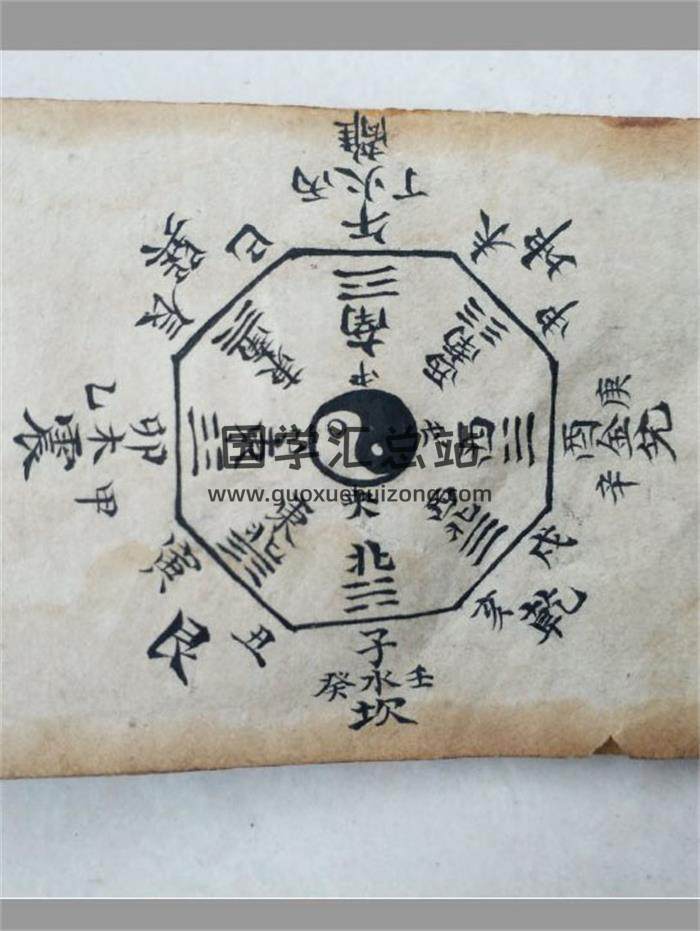 離
丁火丙
午
南
中
未
坤
申
西南
庚
酉金兑
辛
西
戌
乾
亥
西北
子
癸水壬
坎
北
丑
艮
寅
東北
甲
卯木震
乙
東
辰
巽
巳
東南
国学汇总站
www.guoxuehuizong.com